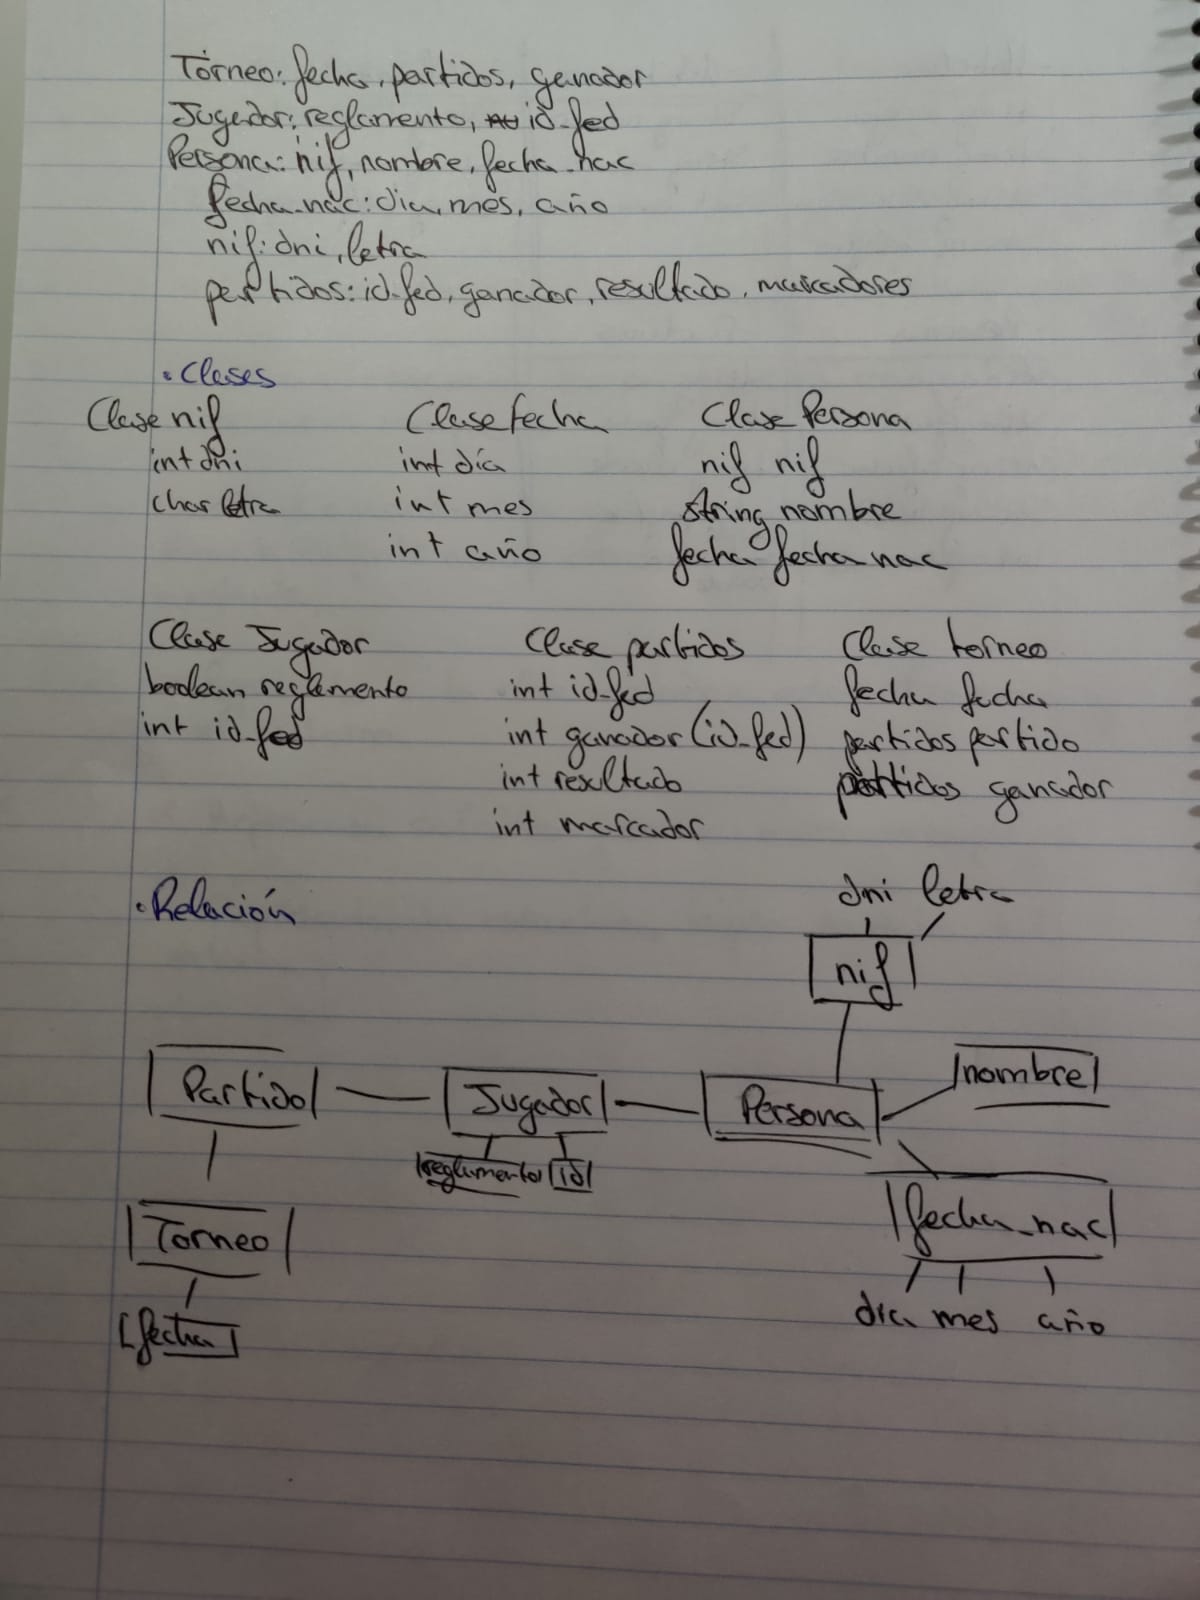 Torneo: fecha, partidos, ganador
Jugador: reglamento, id_fed
Persona: nif, nombre, fecha_nac
fecha_nac: dia, mes, año
nif: dni, letra
partidos: id_fed, ganador, resultado, marcadores
• Clases
Clase nif
int dni
char letra
Clase fecha
int día
int mes
int año
Clase Persona
nif nif
string nombre
fecha fecha nac
Clase Jugador
boolean reglamento
int id_fed
Clase partidos
int id_fed
int ganador (id_fed)
int resultado
int marcador
Clase torneo
fecha fecha
partidos partido
partidos ganador
• Relación
dni letra
nif
Partido
Jugador
Persona
nombre
reglamento
id
Torneo
fecha_nac
fecha
dia mes año